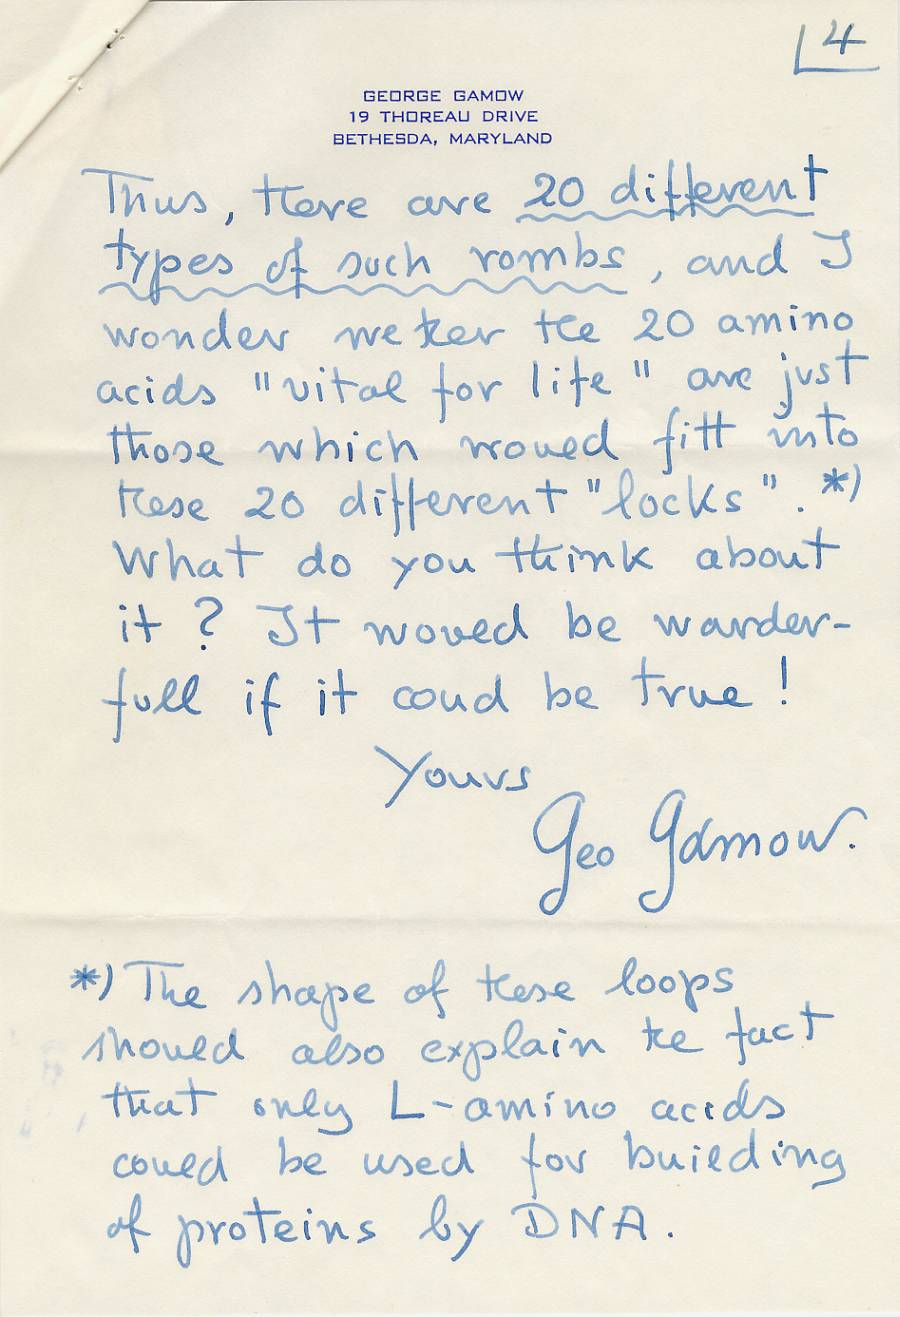 4
GEORGE GAMOW
19 THOREAU DRIVE
BETHESDA, MARYLAND
Thus, there are 20 different
types of such rombs, and I
wonder wether the 20 amino
acids "vital for life" are just
those which would fitt into
these 20 different "locks".*)
What do you think about
it? It would be wander-
full if it coud be true!
Yours
Geo Gamow.
*) The shape of these loops
should also explain the fact
that only L-amino acids
could be used for building
of proteins by DNA.